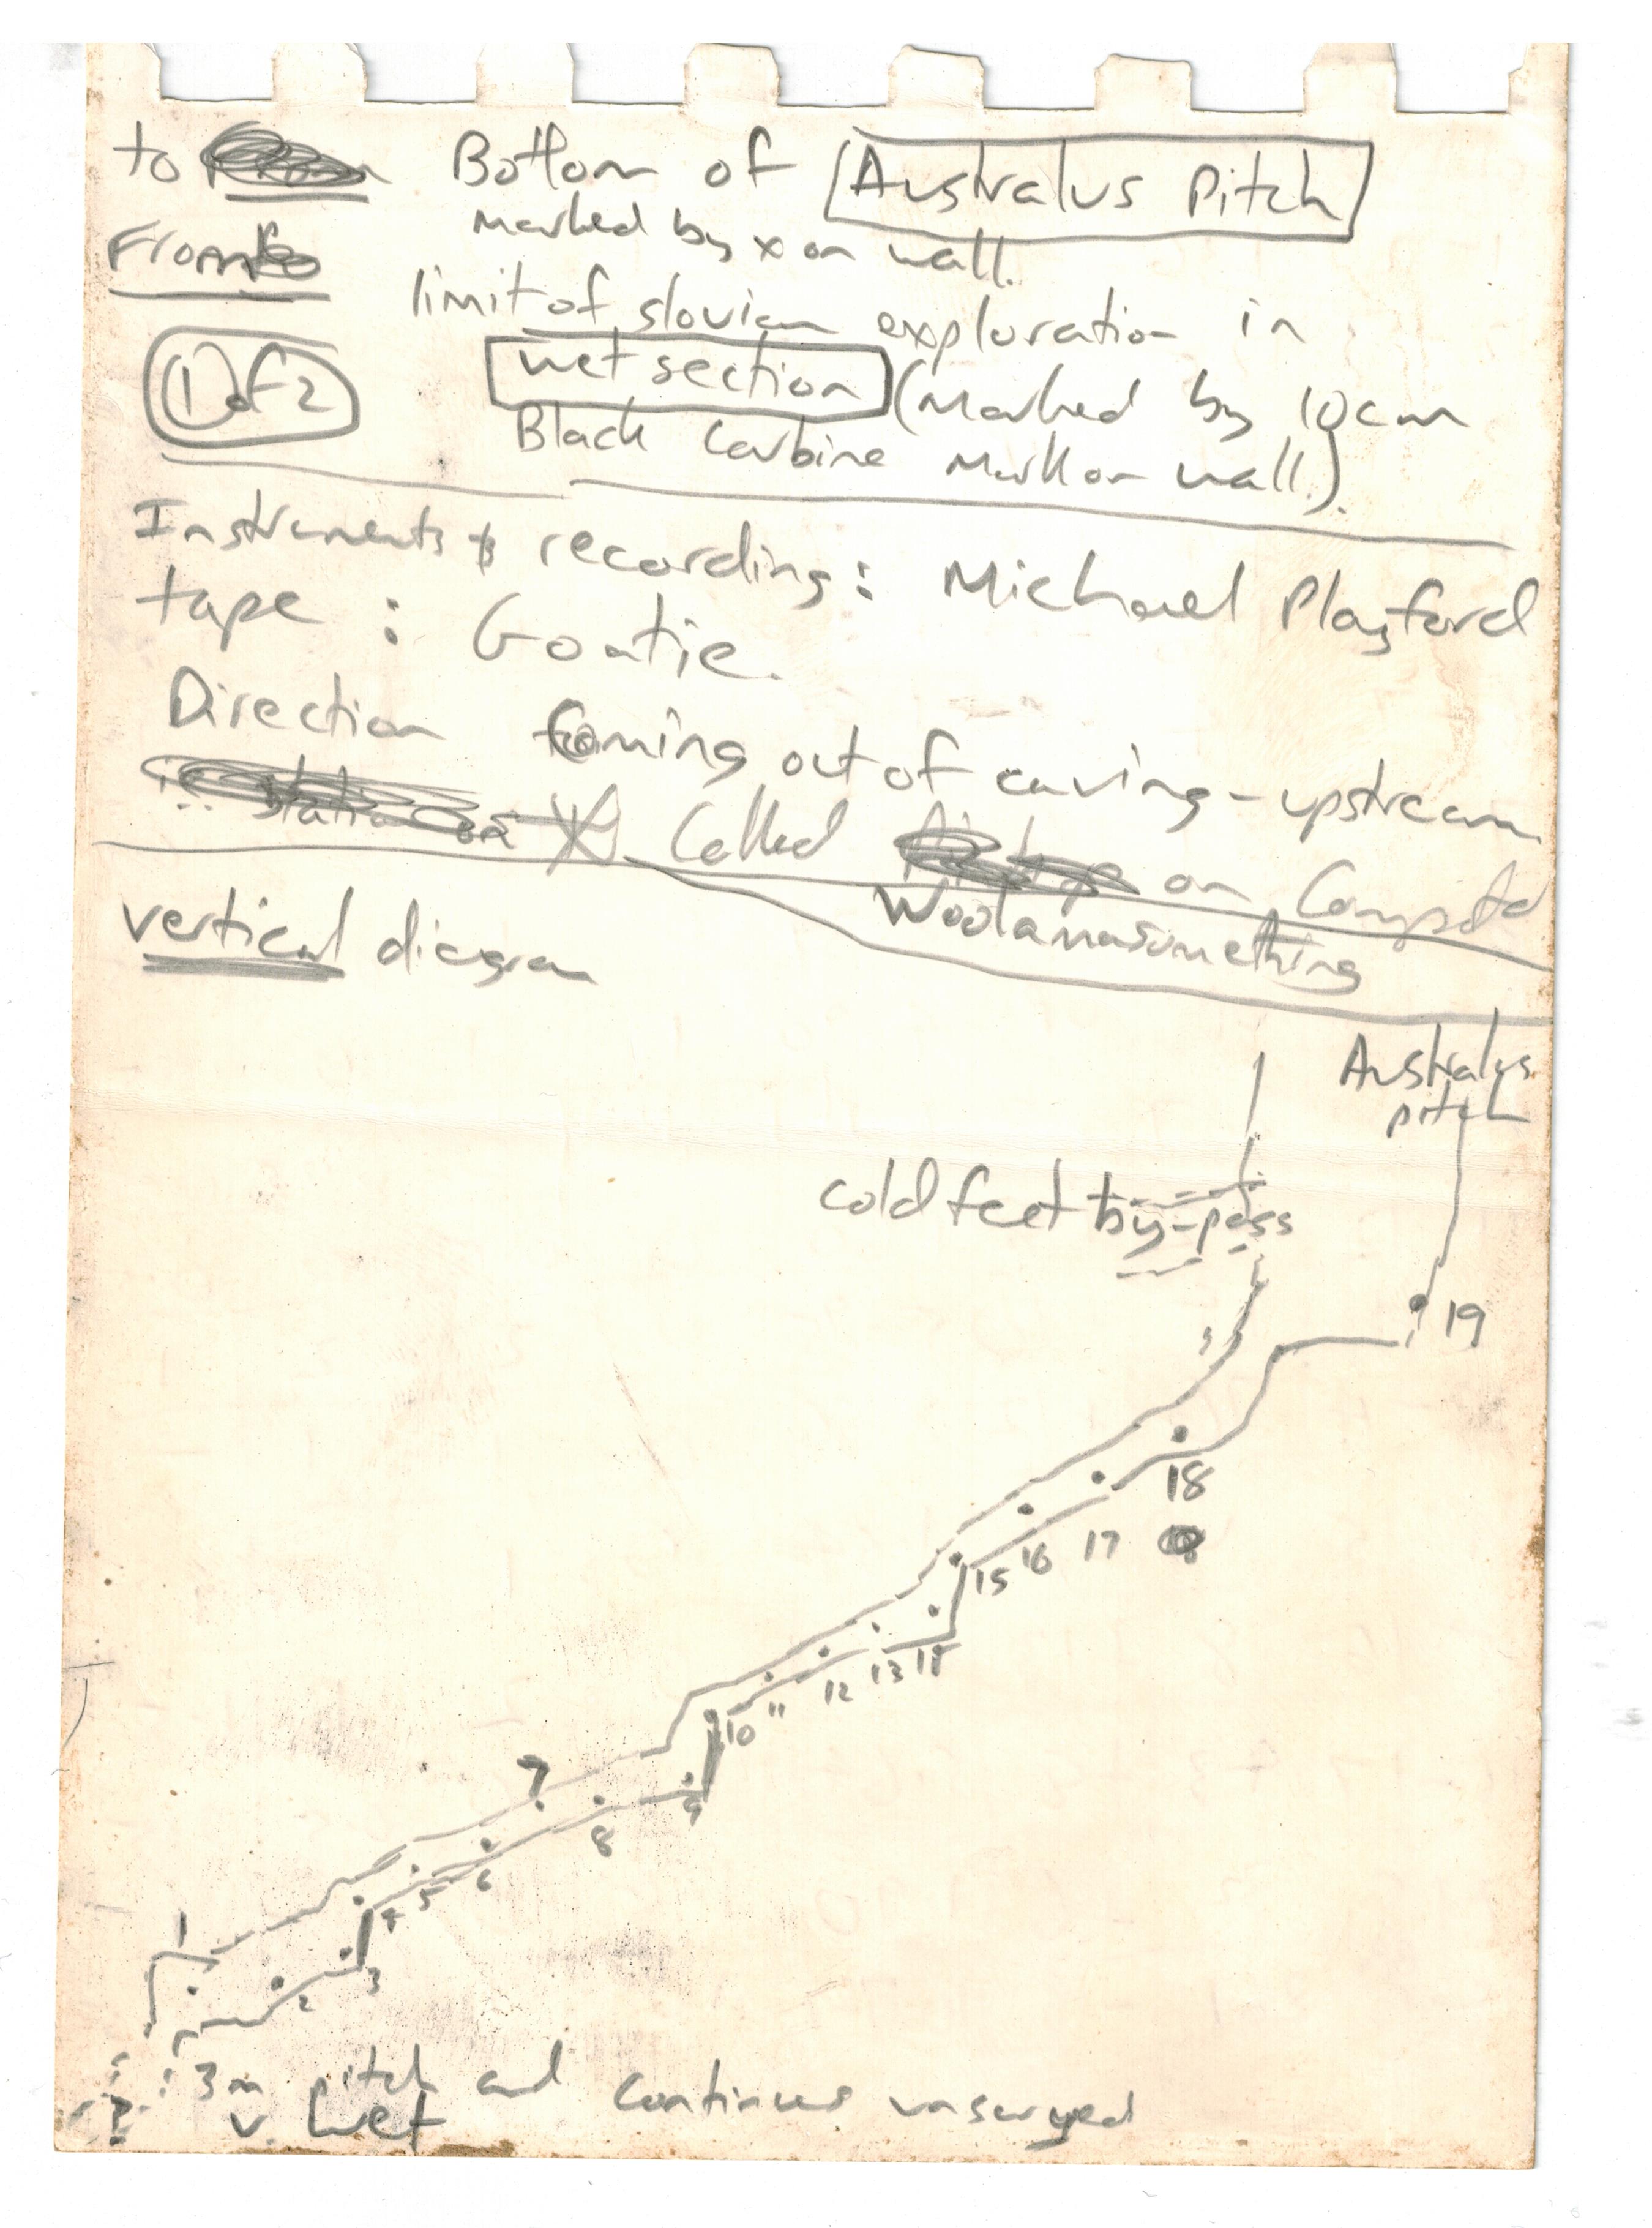 to Bottom of Australus Pitch
marked by x on wall.
From limit of slovian exploration in
1 of 2 wet section (marked by 10cm
Black Carbine mark on wall).
Instruments & recording: Michael Playford
tape : Goatie.
Direction Coming out of caving - upstream
station on X Called on Compute
Woolamasomething
vertical diagram
Australus
pitch
cold feet by-pass
19
18
17
16
15
11
13
12
11
10
9
8
7
6
5
4
3
2
1
3m pitch and continues unserveyed
? v. wet